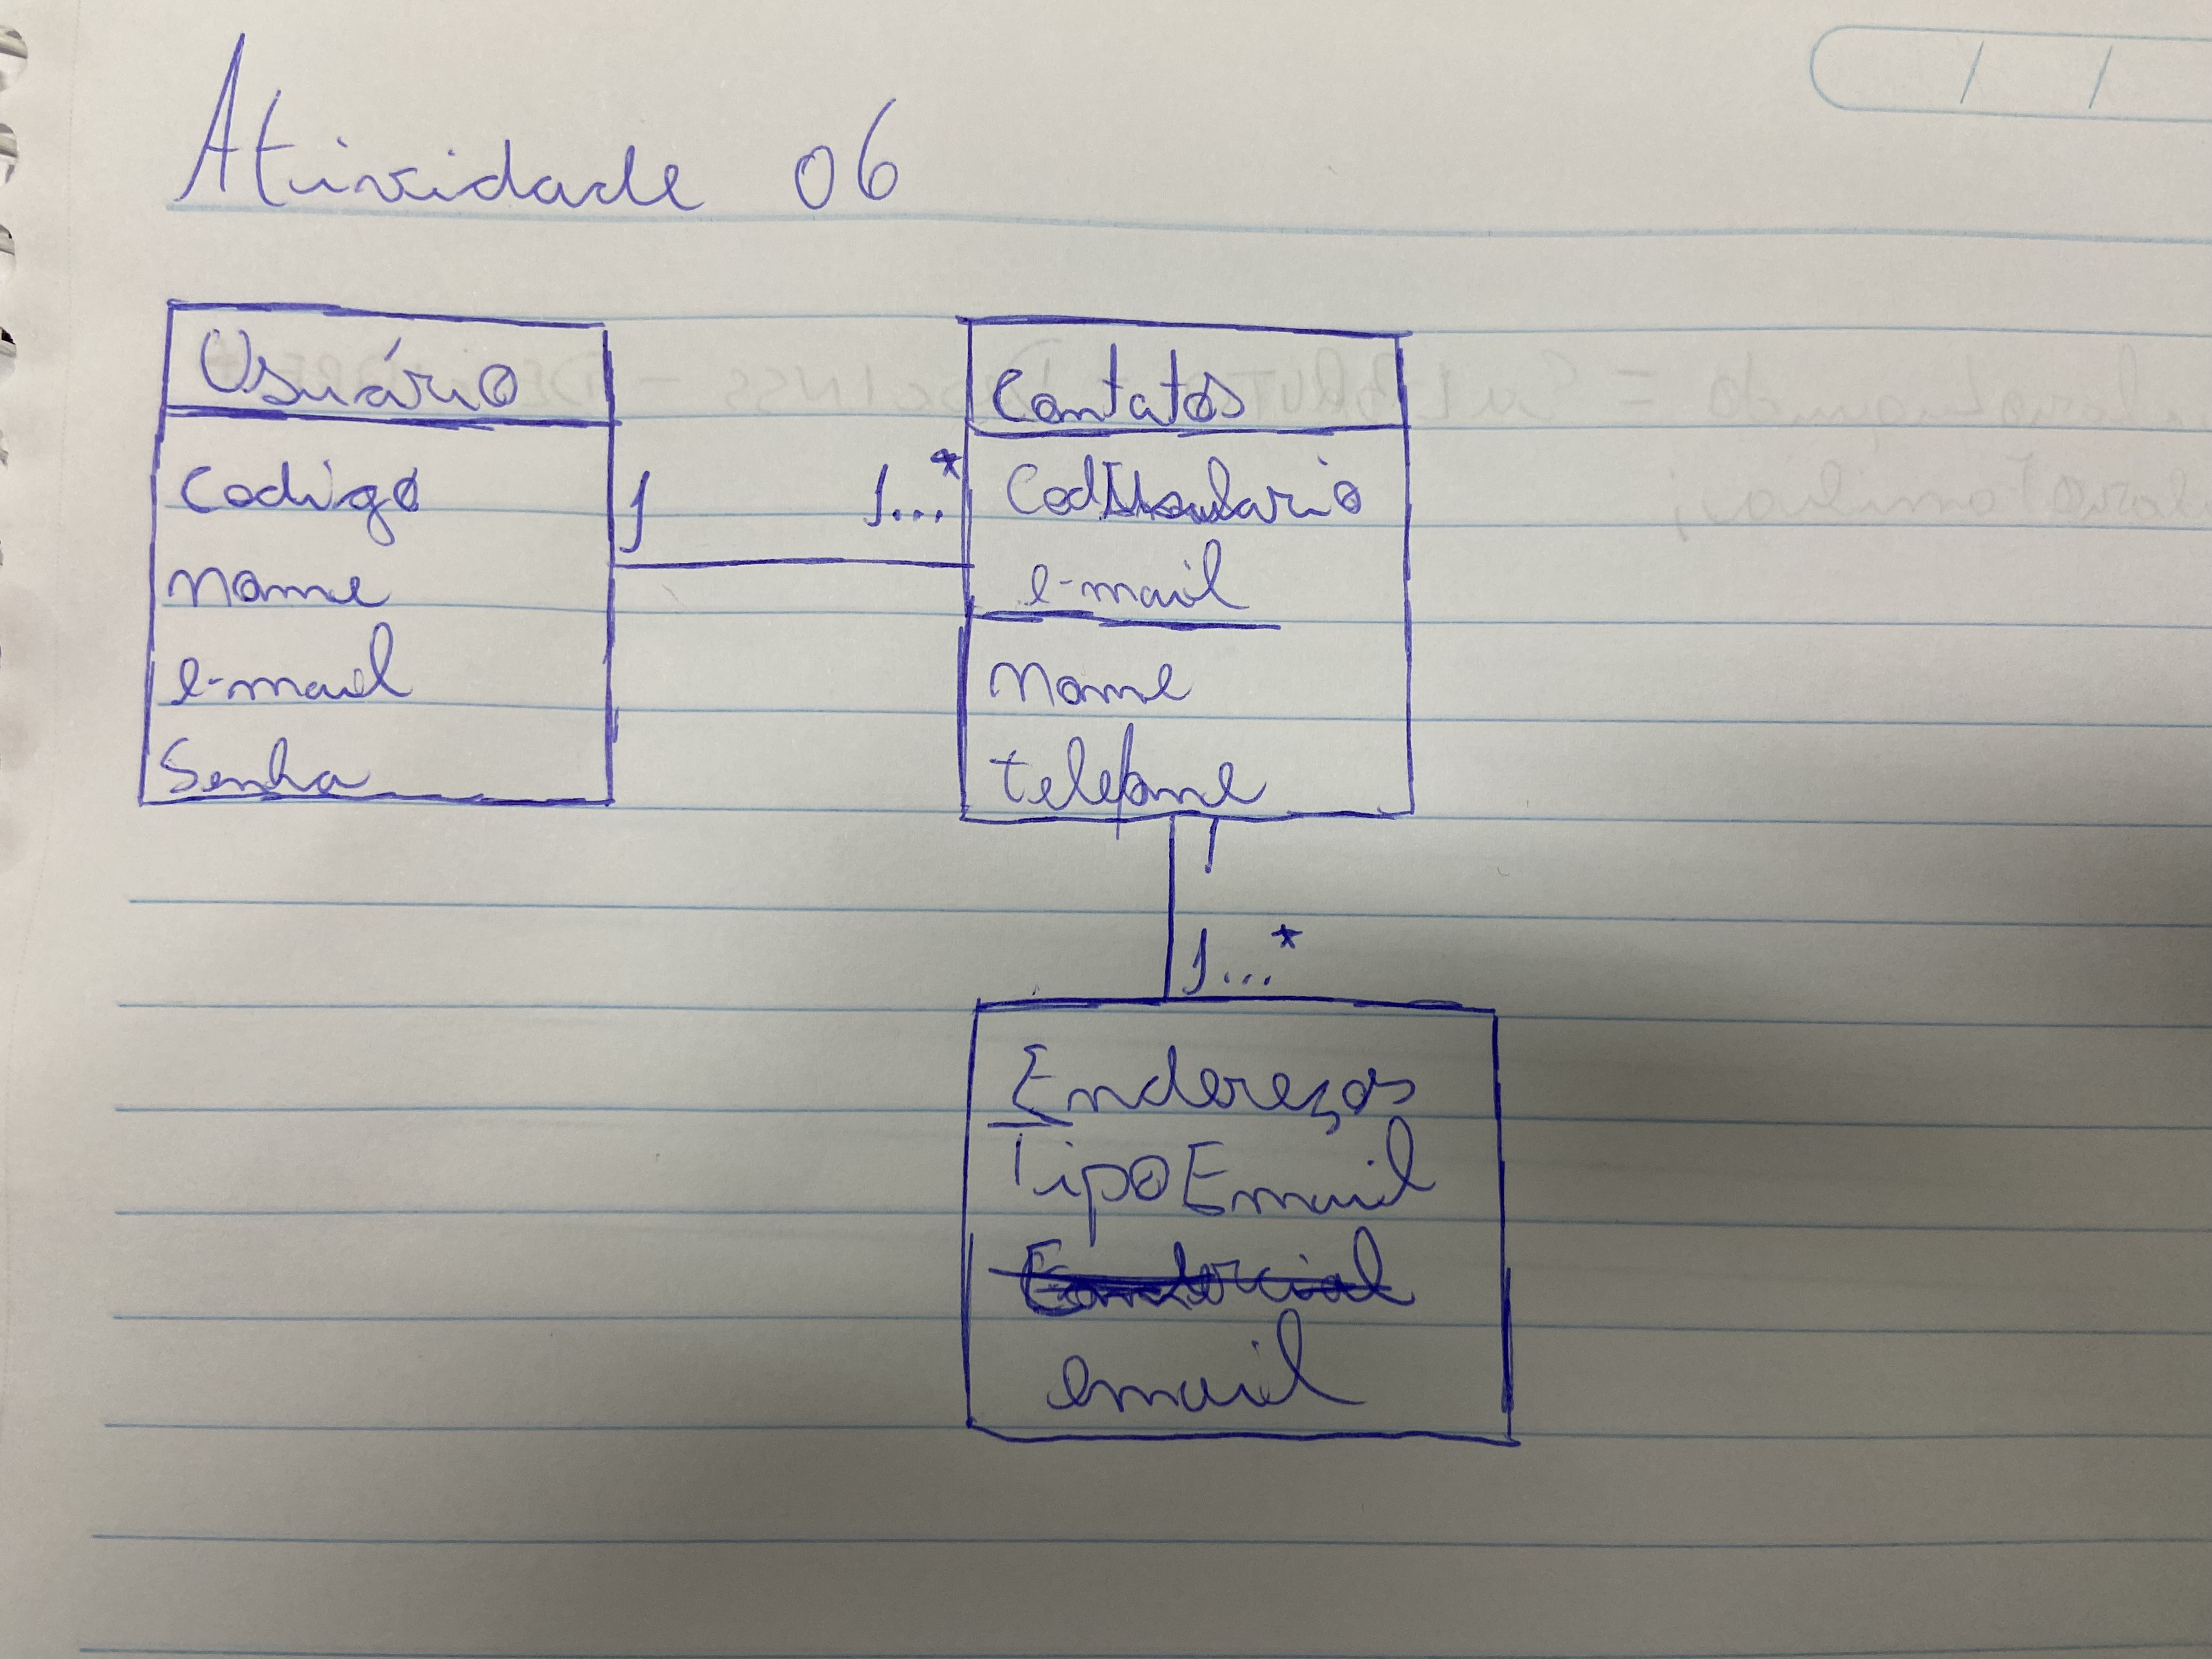 Atividade 06
Usuário
Codigo
Nome
e-mail
Senha
1
1...*
Contatos
CodUsuario
e-mail
Nome
telefone
1
1...*
Endereços
TipoEmail
Email